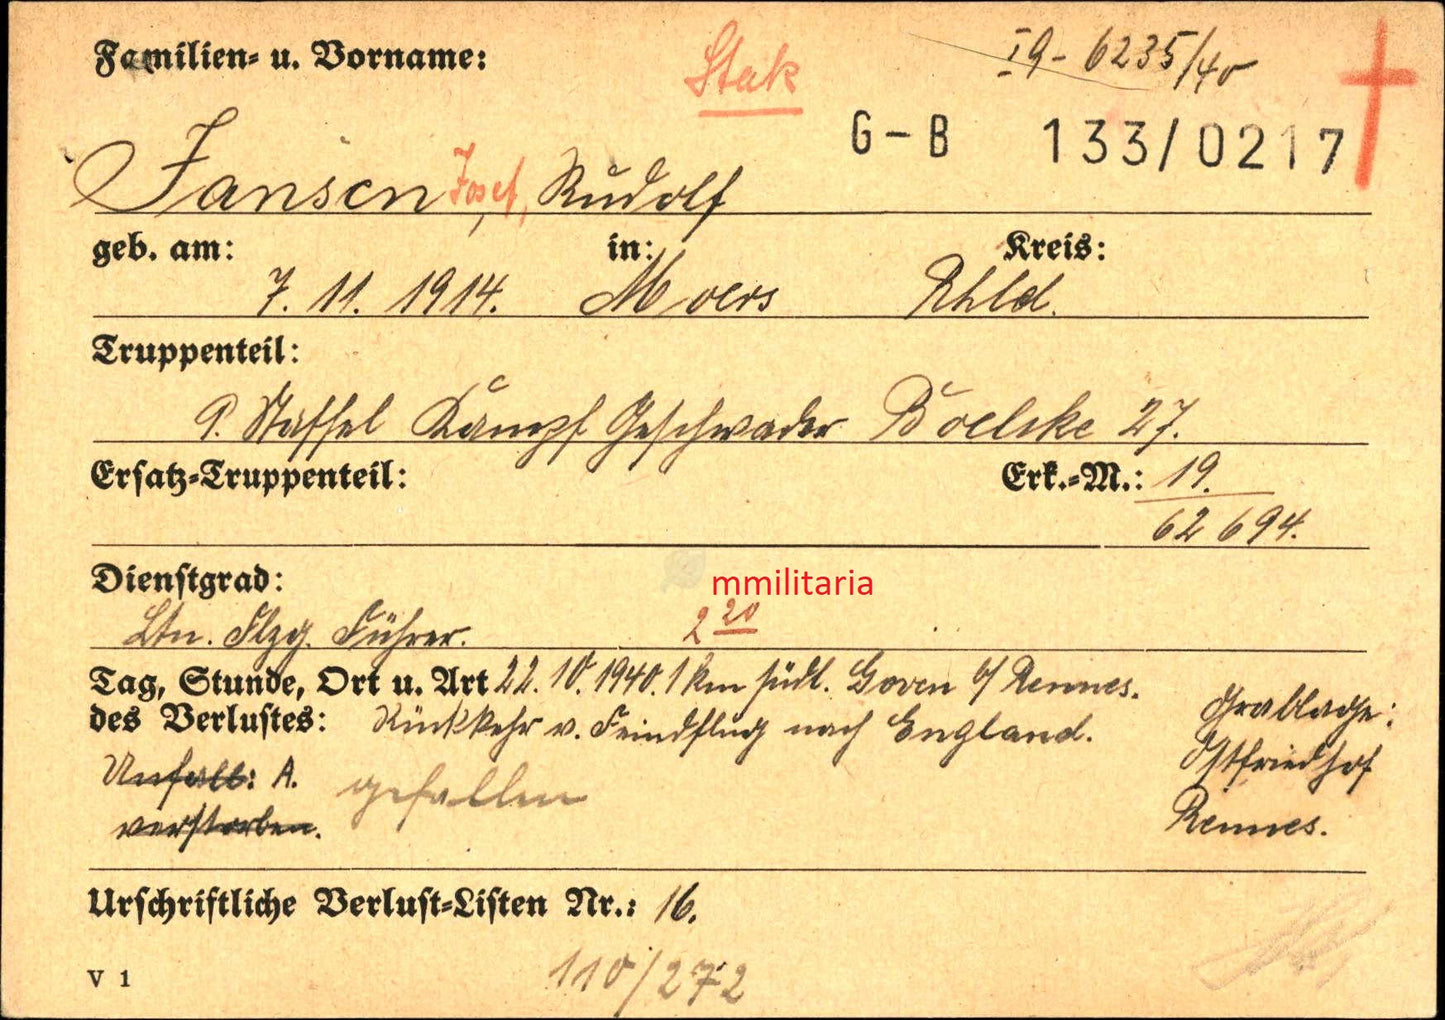 Familien- u. Vorname:
Stak
I9- 6235/40
G-B 133/0217
Jansen Josef, Rudolf
geb. am: in: Kreis:
7. 11. 1914. Moers Rhld.
Truppenteil:
9. Staffel Kampf Geschwader Boelcke 27.
Ersatz-Truppenteil: Erk.-M.: 19.
62 694.
Dienstgrad:
mmilitaria
Ltn. Flzg. Führer. 2 20
Tag, Stunde, Ort u. Art 22. 10. 1940. 1 km südl. Goven b/ Rennes.
des Verlustes: Rückkehr v. Feindflug nach England.
Grablage:
Ostfriedhof
Rennes.
Unfall: A. gefallen
verstorben.
Urschriftliche Verlust-Listen Nr.: 16.
V 1
110/272